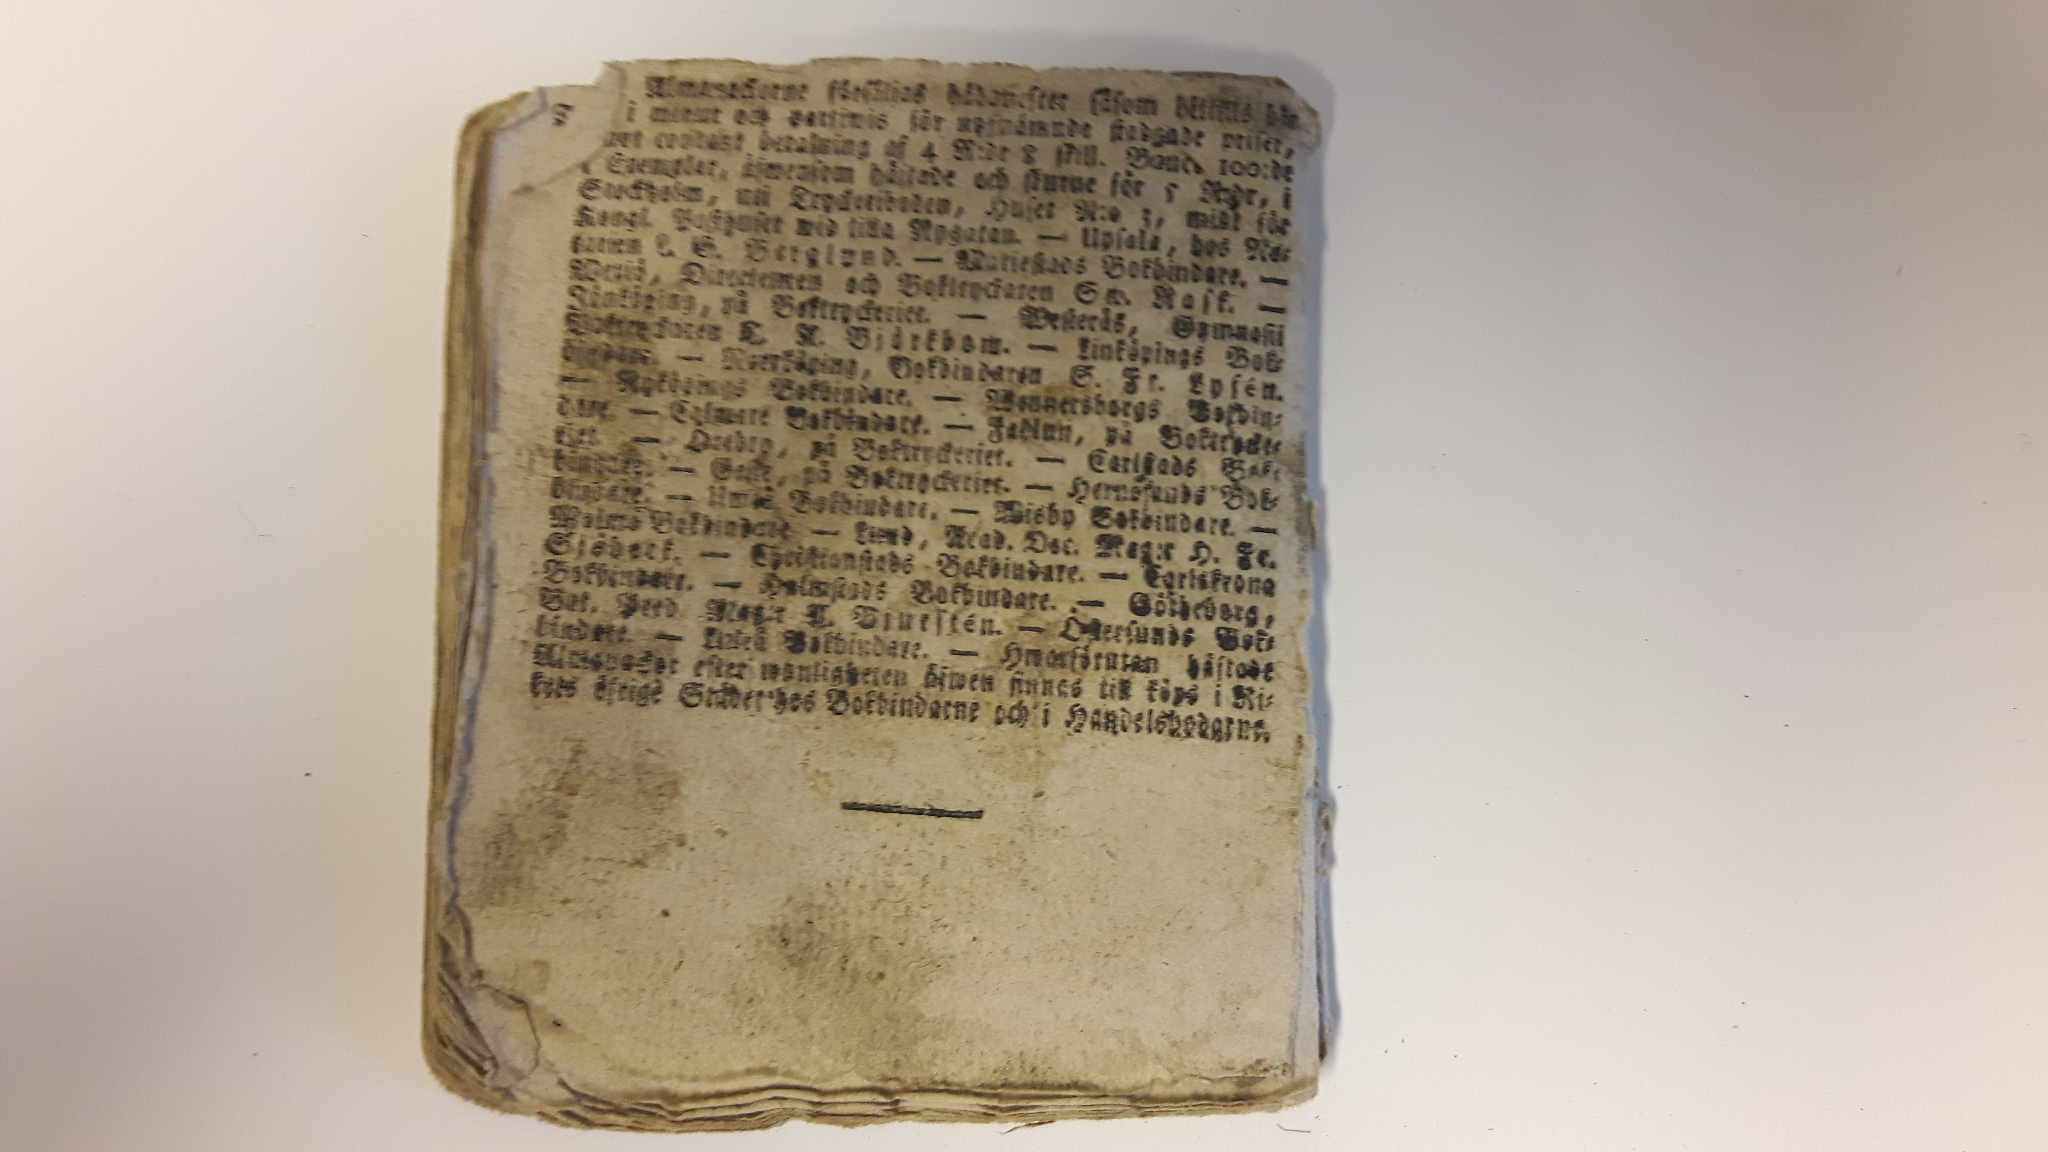 Almanackorne försäljas hädanefter såsom hittills här
i minut och partiwis för nysnämnde stadgade priser,
mot contant betalning af 4 R:dr 8 skill. Banc. 100:de
Exemplar, äfwensom häftade och skurne för 5 R:dr, i
Stockholm, uti Tryckeriboden, Huset N:o 3, midt för
Kongl. Posthuset wid lilla Nygatan. — Upsala, hos
E. G. Berglund. — Mariestads Bokbindare. —
Wexiö, Directeuren och Boktryckaren Sw. Rask. —
Jönköping, på Boktryckeriet. — Westerås, Gymnasii
Boktryckaren Björkbom. — Linköpings Bok-
bindare. — Norrköping, Bokbindaren S. Fr. Lysén.
— Nyköpings Bokbindare. — Wennersborgs Bokbin-
dare. — Calmare Bokbindare. — Fahlun, på Boktrycke-
riet. — Örebro, på Boktryckeriet. — Carlstads Bok-
bindare. — Gefle, på Boktryckeriet. — Hernösands Bok-
bindare. — Umeå Bokbindare. — Wisby Bokbindare. —
Malmö Bokbindare. — Lund, Acad. Doc. Mag:r H. Fr.
Sjöbeck. — Christianstads Bokbindare. — Carlskrona
Bokbindare. — Halmstads Bokbindare. — Götheborg,
Bat. Pred. Mag:r Bjursten. — Östersunds Bok-
bindare. — Luleå Bokbindare. — Hwarförutan häftade
Almanackor efter wanligheten äfwen finnas till köps i Ri-
kets öfrige Städer hos Bokbindarne och i Handelsbodarne.